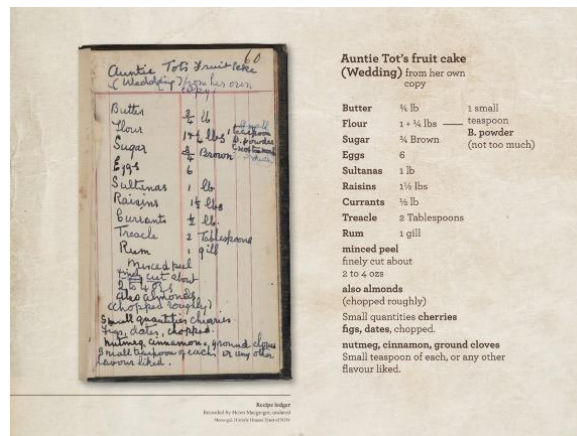 60
Auntie Tot's Fruit Cake
(Wedding) from her own
copy
Butter ¾ lb
Flour 1+¼ lbs 1 small
teaspoon
B. powder
Sugar ¾ Brown
Eggs 6
Sultanas 1 lb
Raisins 1½ lbs
Currants ½ lb.
Treacle 2 Tablespoons
Rum 1 gill
Minced peel
finely cut about
2 to 4 ozs
also almonds
(chopped roughly)
Small quantities cherries
figs, dates, chopped.
nutmeg, cinnamon, ground cloves
Small teaspoon of each, or any other
flavour liked.
Auntie Tot's fruit cake
(Wedding) from her own
copy
Butter ¾ lb 1 small
Flour 1 + ¼ lbs teaspoon
B. powder
Sugar ¾ Brown (not too much)
Eggs 6
Sultanas 1 lb
Raisins 1½ lbs
Currants ½ lb
Treacle 2 Tablespoons
Rum 1 gill
minced peel
finely cut about
2 to 4 ozs
also almonds
(chopped roughly)
Small quantities cherries
figs, dates, chopped.
nutmeg, cinnamon, ground cloves
Small teaspoon of each, or any other
flavour liked.
Recipe ledger
Recorded by Helen Macgregor, undated